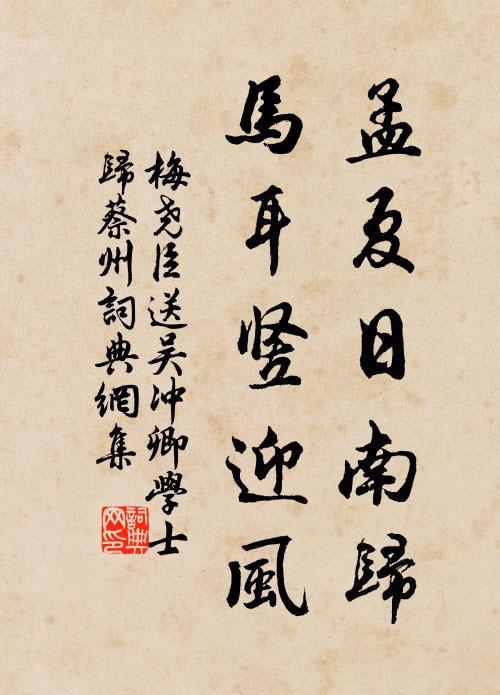 孟夏日南歸
馬耳竖迎風
梅尧臣送吴冲卿學士
歸蔡州詞典網集
詞典网印